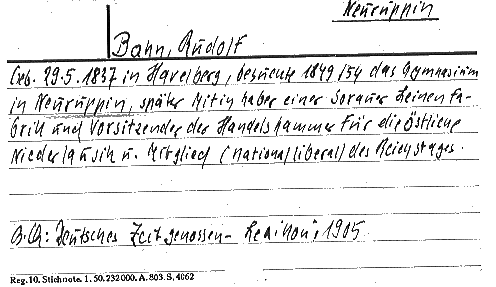 Neuruppin
Bahn, Rudolf
Geb. 29.5.1837 in Havelberg, besuchte 1849/54 das Gymnasium
in Neuruppin, später Mitinhaber einer Sorauer Leinenfa-
brik und Vorsitzender der Handelskammer für die östliche
Niederlausitz u. Mitglied (nationalliberal) des Reichstages.
Deutsches Zeitgenossen-Lexikon, 1905
Reg. 10. Stichnote. 1. 50. 232000. A. 803. S. 4062